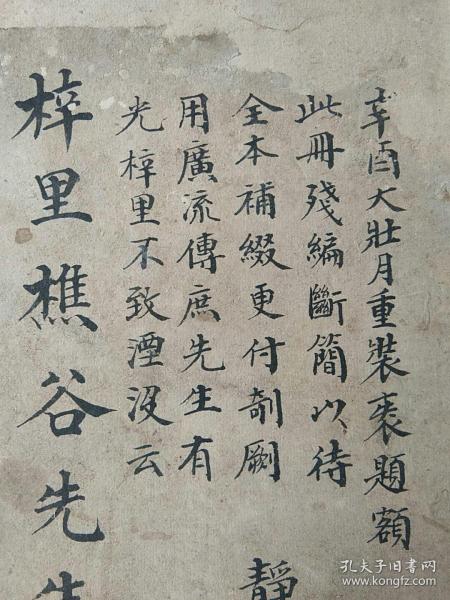 辛酉大壯月重裝裘題額
此冊殘編斷簡以待
全本補綴更付剞劂
用廣流傳庶先生有
光梓里不致湮沒云
靜
梓里樵谷先生
孔夫子旧书网
www.kongfz.com